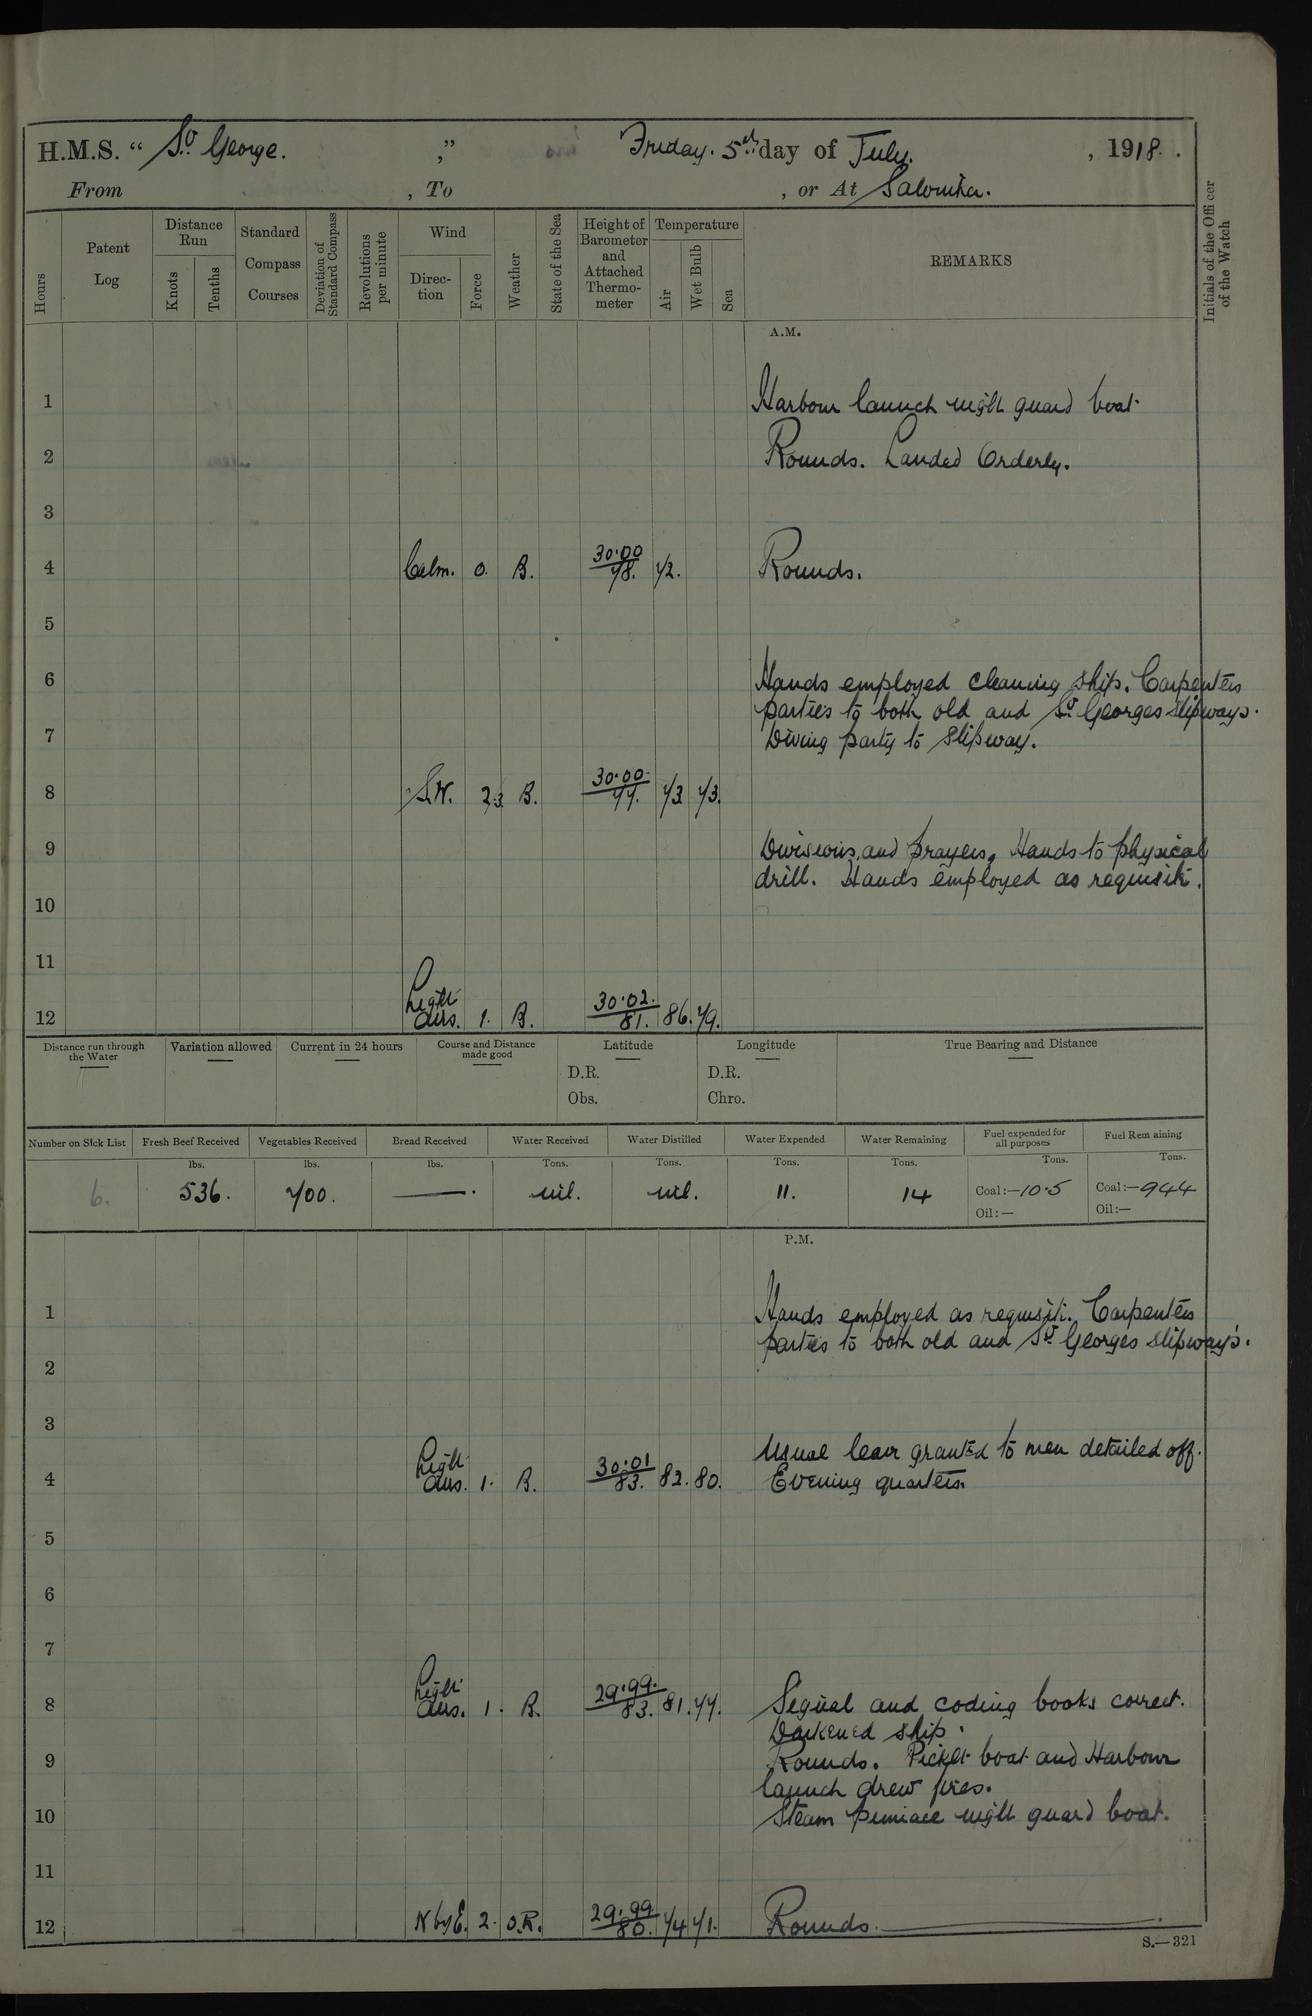 H.M.S. “ St George. ,” Friday. 5th day of July. , 1918.
From , To , or At Salonika.
Hours
Patent Log
Distance Run
Knots
Tenths
Standard Compass Courses
Deviation of Standard Compass
Revolutions per minute
Wind
Direction
Force
Weather
State of the Sea
Height of Barometer and Attached Thermometer
Temperature
Air
Wet Bulb
Sea
REMARKS
Initials of the Officer of the Watch
A.M.
1 Harbour launch night guard boat
2 Rounds. Landed Orderly.
3
4 Calm. 0. B. 30.00 78. 72. Rounds.
5
6 Hands employed cleaning ship. Carpenters
parties to both old and St Georges slipways.
7 Diving party to slipway.
8 S.W. 2.3. B. 30.00 77. 73 73.
9 Divisions and prayers. Hands to physical
drill. Hands employed as requisite.
10
11
12 Light airs. 1. B. 30.02. 81. 86. 79.
Distance run through the Water
Variation allowed
Current in 24 hours
Course and Distance made good
Latitude
D.R.
Obs.
Longitude
D.R.
Chro.
True Bearing and Distance
Number on Sick List
Fresh Beef Received
Vegetables Received
Bread Received
Water Received
Water Distilled
Water Expended
Water Remaining
Fuel expended for all purposes
Fuel Remaining
lbs. lbs. lbs. Tons. Tons. Tons. Tons. Tons. Tons.
6. 536. 700. —. nil. nil. 11. 14 Coal:—10.5 Coal:—944
Oil:— Oil:—
P.M.
1 Hands employed as requisite. Carpenters
parties to both old and St Georges slipways.
2
3
Usual leave granted to men detailed off.
4 Light airs. 1. B. 30.01 83. 82. 80. Evening quarters.
5
6
7
8 Light airs. 1. B. 29.99. 83. 81. 77. Signal and coding books correct.
Darkened ship.
9 Rounds. Picket boat and Harbour
launch drew fires.
10 Steam pinnace night guard boat.
11
12 N by E. 2. O.R. 29.99 80. 74 71. Rounds.
S.—321